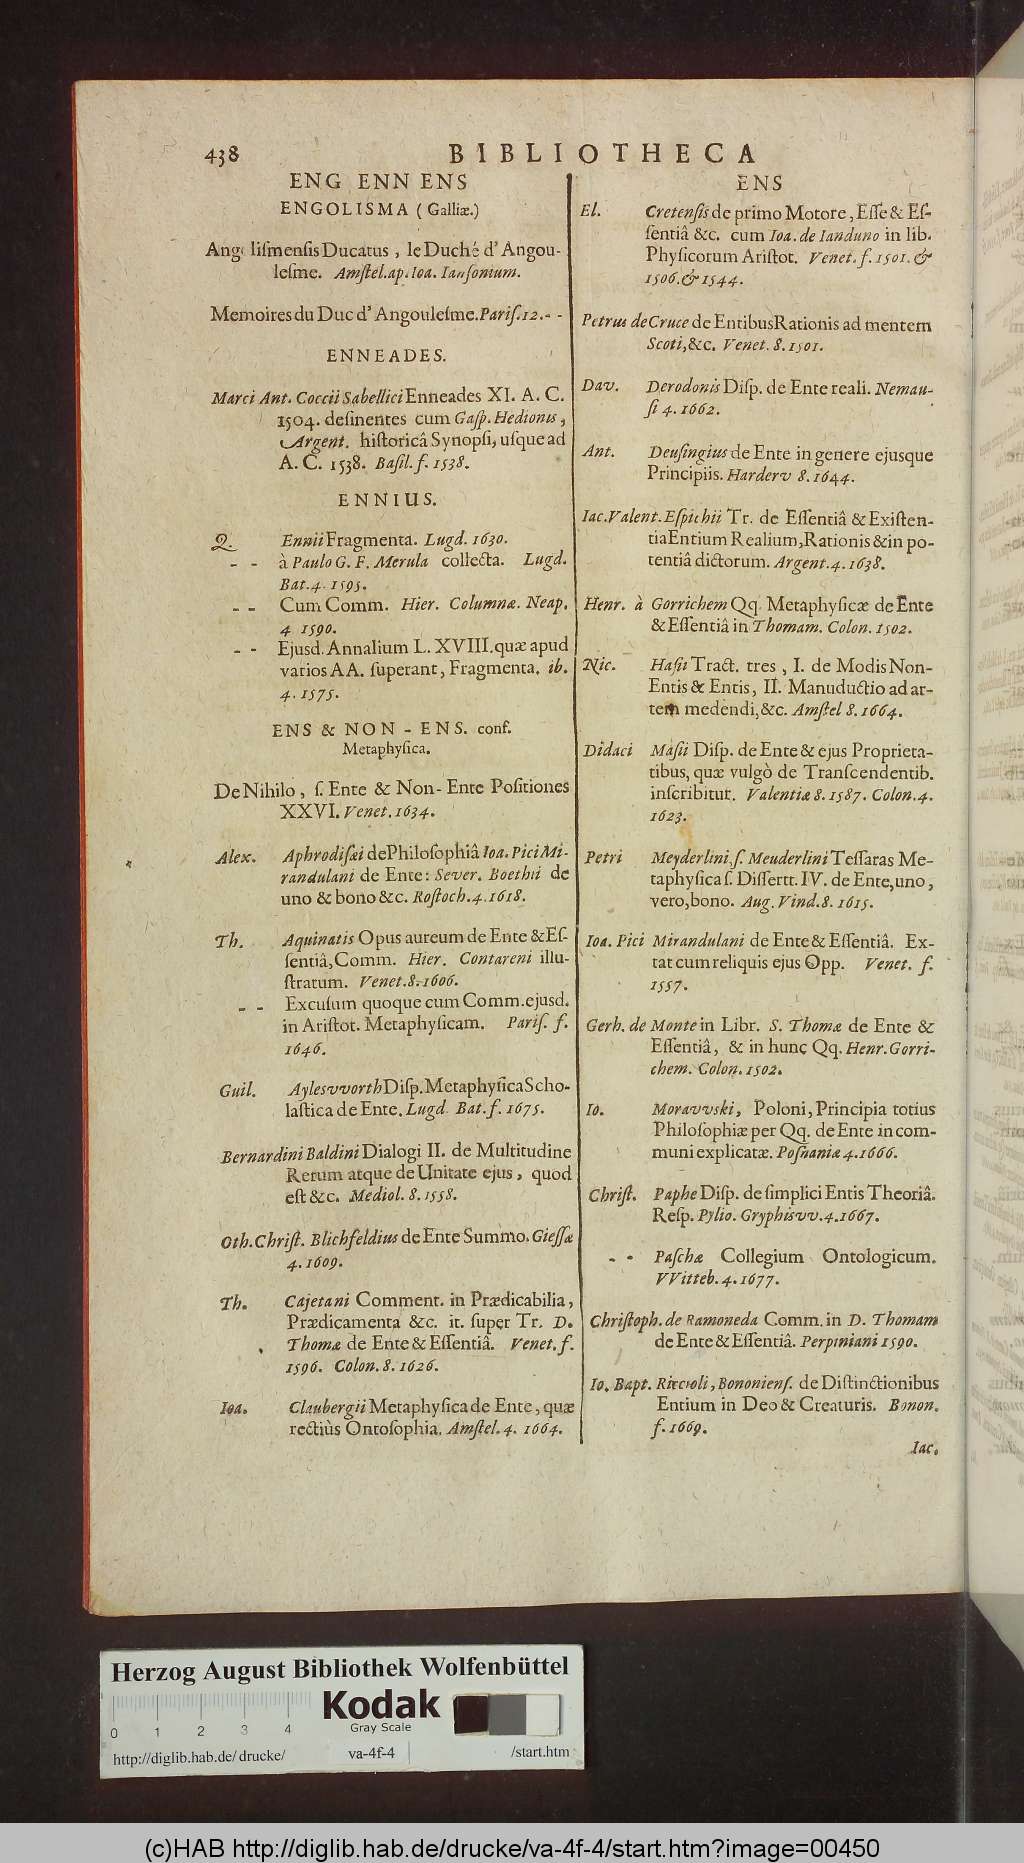 438
BIBLIOTHECA
ENG ENN ENS
ENGOLISMA (Galliæ.)
Ango liſmensis Ducatus, le Duché d'Angou-
leſme. Amſtel. ap. Ioa. Ianſonium.
Memoires du Duc d'Angouleſme. Pariſ. 12. - -
ENNEADES.
Marci Ant. Coccii Sabellici Enneades XI. A. C.
1504. deſinentes cum Gaſp. Hedionis,
Argent. hiſtoricâ Synopſi, uſque ad
A. C. 1538. Baſil. f. 1538.
ENNIUS.
Q. Ennii Fragmenta. Lugd. 1630.
- - à Paulo G. F. Merula collecta. Lugd.
Bat. 4. 1595.
- - Cum Comm. Hier. Columnæ. Neap.
4. 1590.
- - Ejusd. Annalium L. XVIII. quæ apud
varios AA. ſuperant, Fragmenta. ib.
4. 1575.
ENS & NON-ENS. conf.
Metaphyſica.
De Nihilo, ſ. Ente & Non-Ente Poſitiones
XXVI. Venet. 1634.
Alex. Aphrodiſæi de Philoſophiâ Ioa. Pici Mi-
randulani de Ente: Sever. Boethii de
uno & bono &c. Roſtoch. 4. 1618.
Th. Aquinatis Opus aureum de Ente & Eſ-
ſentiâ, Comm. Hier. Contareni illu-
ſtratum. Venet. 8. 1606.
- - Excuſum quoque cum Comm. ejusd.
in Ariſtot. Metaphyſicam. Pariſ. f.
1646.
Guil. Aylesvvorth Diſp. Metaphyſica Scho-
laſtica de Ente. Lugd. Bat. f. 1675.
Bernardini Baldini Dialogi II. de Multitudine
Rerum atque de Unitate ejus, quod
eſt &c. Mediol. 8. 1558.
Oth. Chriſt. Blichfeldius de Ente Summo. Gieſſæ
4. 1609.
Th. Cajetani Comment. in Prædicabilia,
Prædicamenta &c. it. ſuper Tr. D.
Thomæ de Ente & Eſſentiâ. Venet. f.
1596. Colon. 8. 1626.
Ioa. Claubergii Metaphyſica de Ente, quæ
rectiùs Ontoſophia. Amſtel. 4. 1664.
ENS
El. Cretenſis de primo Motore, Eſſe & Eſ-
ſentiâ &c. cum Ioa. de Ianduno in lib.
Phyſicorum Ariſtot. Venet. f. 1501. &
1506. & 1544.
Petrus de Cruce de Entibus Rationis ad mentem
Scoti, &c. Venet. 8. 1501.
Dav. Derodonis Diſp. de Ente reali. Nemau-
ſi 4. 1662.
Ant. Deuſingius de Ente in genere ejusque
Principiis. Harderv 8. 1644.
Iac. Valent. Eſpichii Tr. de Eſſentiâ & Exiſten-
tia Entium Realium, Rationis & in po-
tentiâ dictorum. Argent. 4. 1638.
Henr. à Gorrichem Qq. Metaphyſicæ de Ente
& Eſſentiâ in Thomam. Colon. 1502.
Nic. Haſii Tract. tres, I. de Modis Non-
Entis & Entis, II. Manuductio ad ar-
tem medendi, &c. Amſtel 8. 1664.
Didaci Maſii Diſp. de Ente & ejus Proprieta-
tibus, quæ vulgò de Tranſcendentib.
inſcribitur. Valentiæ 8. 1587. Colon. 4.
1623.
Petri Meyderlini, ſ. Meuderlini Teſſaras Me-
taphyſica ſ. Diſſertt. IV. de Ente, uno,
vero, bono. Aug. Vind. 8. 1615.
Ioa. Pici Mirandulani de Ente & Eſſentiâ. Ex-
tat cum reliquis ejus Opp. Venet. f.
1557.
Gerh. de Monte in Libr. S. Thomæ de Ente &
Eſſentiâ, & in hunc Qq. Henr. Gorri-
chem. Colon. 1502.
Io. Moravvski, Poloni, Principia totius
Philoſophiæ per Qq. de Ente in com-
muni explicatæ. Poſnaniæ 4. 1666.
Chriſt. Paphe Diſp. de ſimplici Entis Theoriâ.
Reſp. Pylio. Gryphisvv. 4. 1667.
- - Paſchæ Collegium Ontologicum.
VVitteb. 4. 1677.
Chriſtoph. de Ramoneda Comm. in D. Thomam
de Ente & Eſſentiâ. Perpiniani 1590.
Io. Bapt. Riccioli, Bononienſ. de Diſtinctionibus
Entium in Deo & Creaturis. Bonon.
f. 1669.
Iac.
Herzog August Bibliothek Wolfenbüttel
Kodak
Gray Scale
0 1 2 3 4
http://diglib.hab.de/drucke/ va-4f-4 /start.htm
(c)HAB http://diglib.hab.de/drucke/va-4f-4/start.htm?image=00450